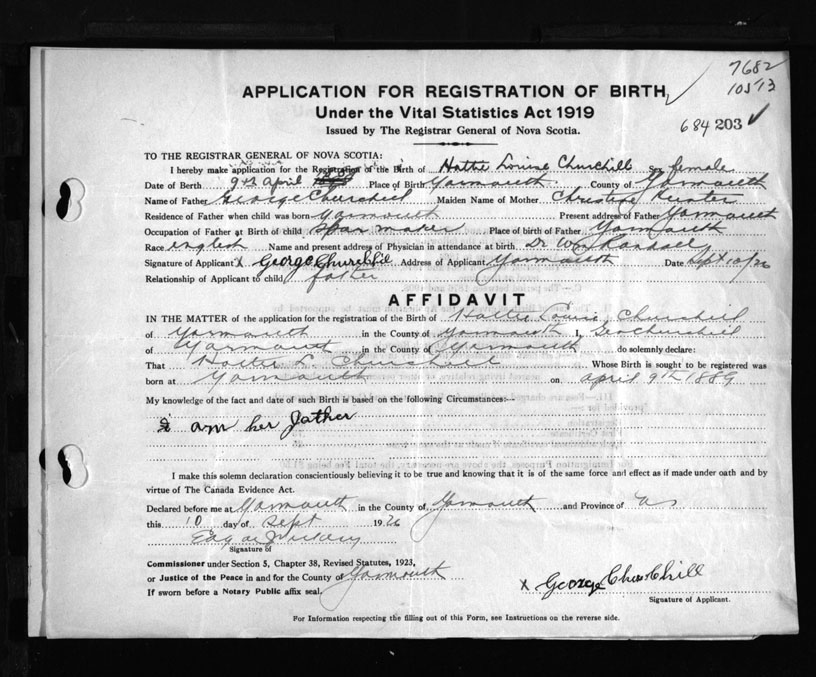 7682
10513
APPLICATION FOR REGISTRATION OF BIRTH
Under the Vital Statistics Act 1919
Issued by The Registrar General of Nova Scotia.
684 203
TO THE REGISTRAR GENERAL OF NOVA SCOTIA:
I hereby make application for the Registration of the Birth of Hattie Louise Churchill Sex female
Date of Birth 9th April Place of Birth Yarmouth County of Yarmouth
Name of Father George Churchill Maiden Name of Mother
Residence of Father when child was born Yarmouth Present address of Father Yarmouth
Occupation of Father at Birth of child Spar maker Place of birth of Father Yarmouth
Race english Name and present address of Physician in attendance at birth Dr Randall
Signature of Applicant X George Churchill Address of Applicant Yarmouth Date Sept 10/26
Relationship of Applicant to child father
AFFIDAVIT
IN THE MATTER of the application for the registration of the Birth of Hattie Louise Churchill
of Yarmouth in the County of Yarmouth I, Geo Churchill
of Yarmouth in the County of Yarmouth do solemnly declare:
That Hattie L. Churchill Whose Birth is sought to be registered was
born at Yarmouth on april 9th 1889
My knowledge of the fact and date of such Birth is based on the following Circumstances:—
I am her father
I make this solemn declaration conscientiously believing it to be true and knowing that it is of the same force and effect as if made under oath and by
virtue of The Canada Evidence Act.
Declared before me at Yarmouth in the County of Yarmouth and Province of NS
this 10 day of Sept 1926
Signature of
Commissioner under Section 5, Chapter 38, Revised Statutes, 1923,
or Justice of the Peace in and for the County of Yarmouth
If sworn before a Notary Public affix seal.
X George Churchill
Signature of Applicant.
For Information respecting the filling out of this Form, see Instructions on the reverse side.